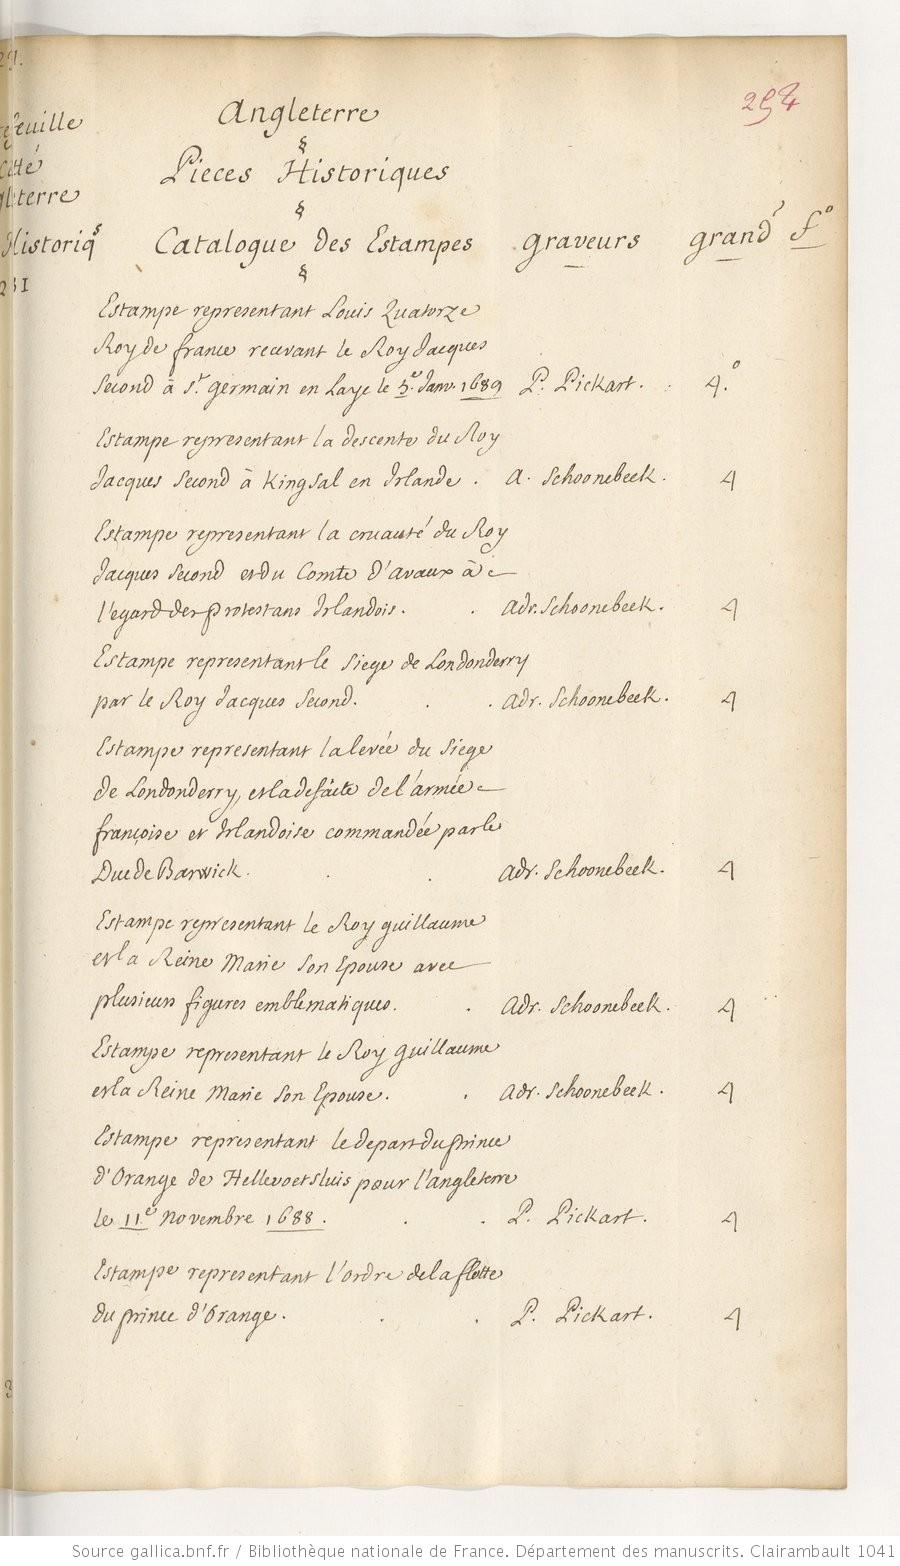 254
Angleterre
§
Pieces Historiques
§
Catalogue des Estampes graveurs grand fº
§
Estampe representant Louis Quatorze
Roy de france recevant le Roy Jacques
Second à St. germain en Laye le 5.e Janv. 1689 P. Pickart. 4.º
Estampe representant la descente du Roy
Jacques Second à Kingsal en Irlande. A. Schoonebeek. 4
Estampe representant la cruauté du Roy
Jacques Second et du Comte D'avaux à
l'egard des protestans Irlandois. Adr. Schoonebeek. 4
Estampe representant le siege de Londonderry
par le Roy Jacques Second. Adr. Schoonebeek. 4
Estampe representant la levée du siege
de Londonderry, et la defaite de l'armée
françoise et Irlandoise commandée par le
Duc de Barwick. Adr. Schoonebeek. 4
Estampe representant le Roy guillaume
et la Reine Marie son Epouse avec
plusieurs figures emblematiques. Adr. Schoonebeek. 4
Estampe representant le Roy guillaume
et la Reine Marie son Epouse. Adr. Schoonebeek. 4
Estampe representant le depart du prince
d'Orange de Hellevoetsluis pour l'angleterre
le 11.e Novembre 1688. P. Pickart. 4
Estampe representant l'ordre de la flotte
du prince d'Orange. P. Pickart. 4
Source gallica.bnf.fr / Bibliothèque nationale de France. Département des manuscrits. Clairambault 1041